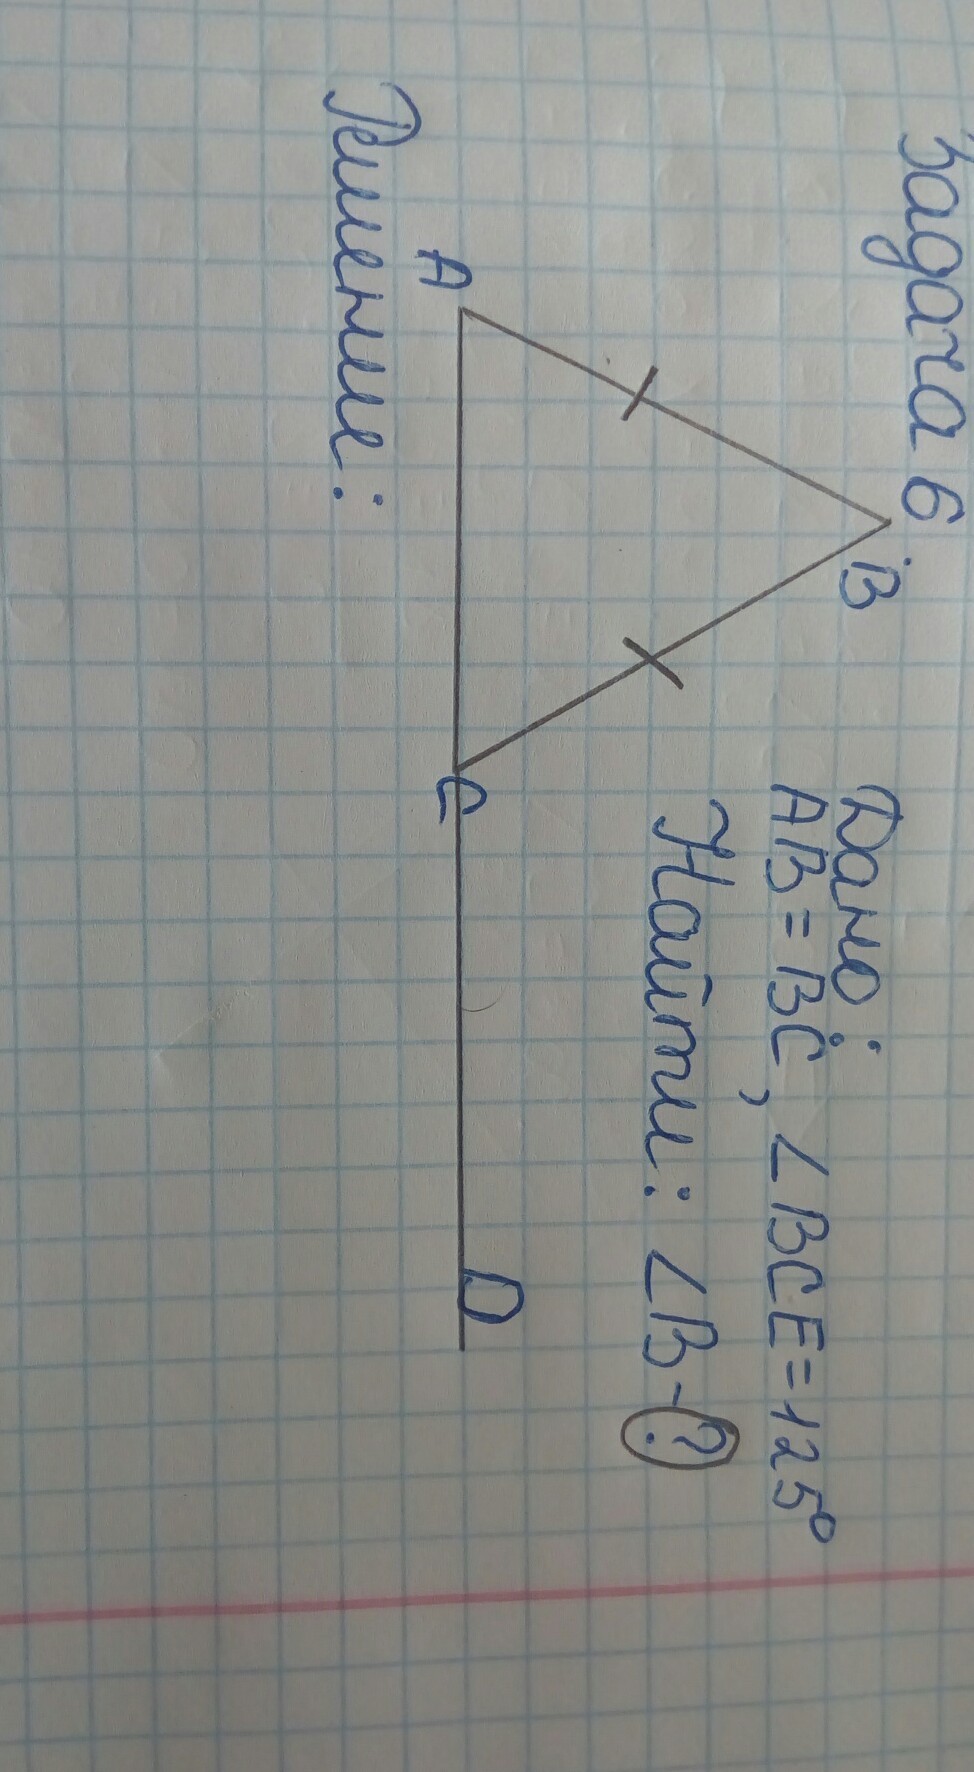 Задача 6
Дано:
AB = BC, ∠BCE = 125°
Найти: ∠B - ?
B
A
C
D
Решение: